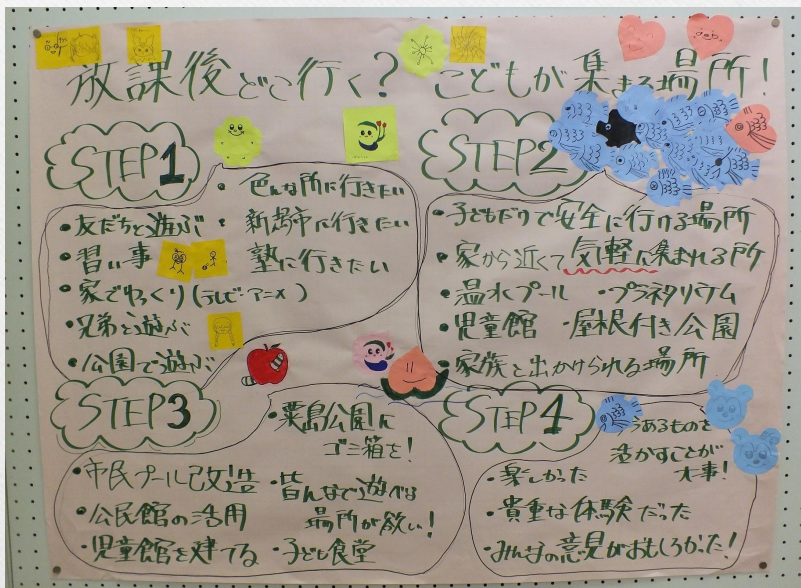 放課後どこ行く? こどもが集まる場所!
STEP1
・友だちと遊ぶ
・習い事
・家でゆっくり(テレビ・アニメ)
・兄弟と遊ぶ
・公園で遊ぶ
・色んな所に行きたい
新潟市に行きたい
塾に行きたい
STEP2
・子どもだけで安全に行ける場所
・家から近くて気軽に集まれる所
・温水プール ・プラネタリウム
・児童館 ・屋根付き公園
・家族と出かけられる場所
STEP3
・粟島公園に
ゴミ箱を!
・市民プール改造
・公民館の活用
・児童館を建てる
・皆んなで遊べる
場所が欲い!
・子ども食堂
STEP4
今あるものを
活かすことが
大事!
・楽しかった
・貴重な体験だった
・みんなの意見がおもしろかった!